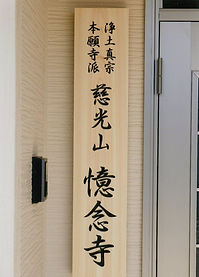 浄土真宗
本願寺派
慈光山
憶念寺